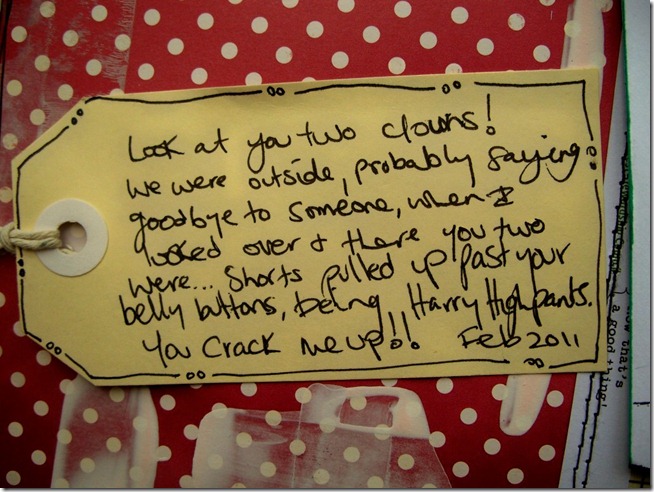 Look at you two clowns!
We were outside, probably saying
goodbye to someone, when I
looked over & there you two
were... Shorts pulled up past your
belly buttons, being Harry Highpants.
You Crack me up!! Feb 2011
now that's
a good thing!